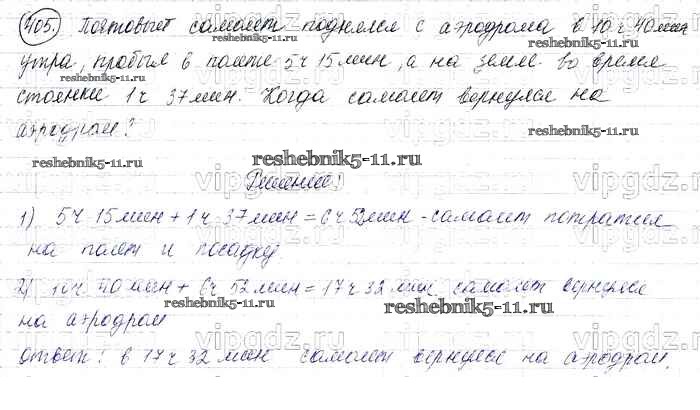 405. Почтовый самолет поднялся с аэродрома в 10 ч 40 мин
утра, пробыл в полете 5 ч 15 мин, а на земле во время
стоянки 1 ч 37 мин. Когда самолет вернулся на
аэродром?
reshebnik5-11.ru
reshebnik5-11.ru
reshebnik5-11.ru
vipgdz.ru
vipgdz.ru
Решение:
1) 5 ч 15 мин + 1 ч 37 мин = 6 ч 52 мин - самолет потратил
на полет и посадку.
vipgdz.ru
vipgdz.ru
2) 10 ч 40 мин + 6 ч 52 мин = 17 ч 32 мин самолет вернулся
reshebnik5-11.ru
reshebnik5-11.ru
на аэродром
vipgdz.ru
vipgdz.ru
Ответ: в 17 ч 32 мин самолет вернулся на аэродром.